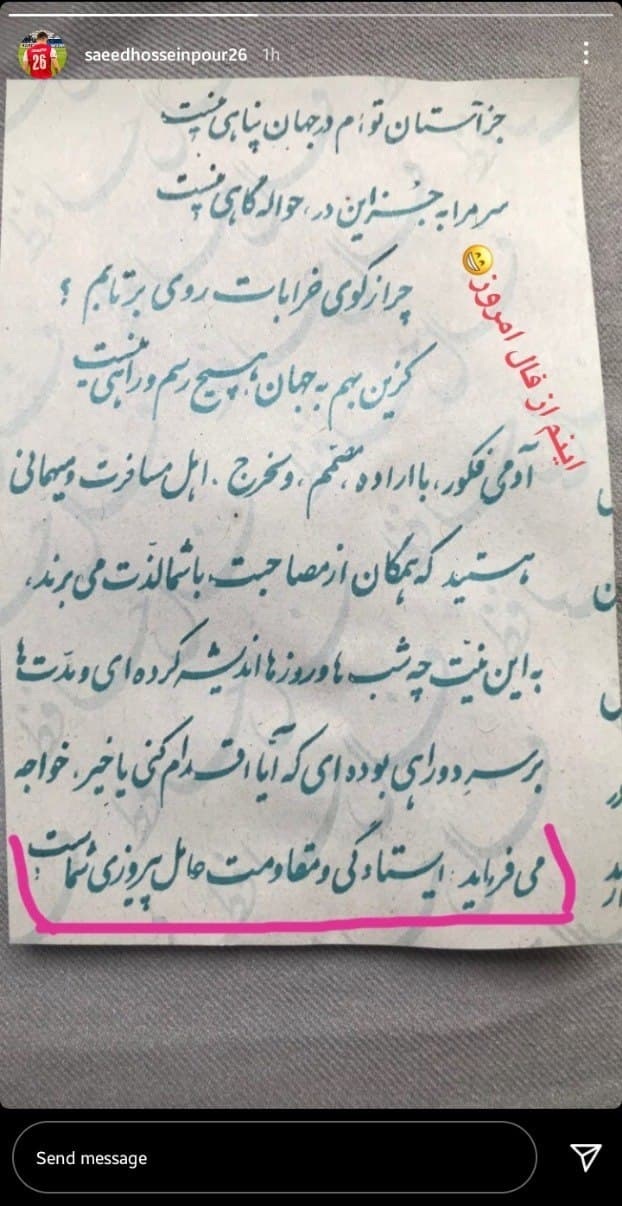 saeedhosseinpour26 1h
26
جز آستان توأم در جهان پناهی نیست
سر مرا به جز این در، حواله گاهی نیست
اینم از فال امروز😄
چرا زکوی خرابات روی برتابم ؟
کزین بهم به جهان هیچ رسم و راهی نیست
آدمی فکور، با اراده، مصمّم، ولخرج . اهل مسافرت و میهمانی
هستید که همگان از مصاحبت با شما لذّت می برند،
به این نیّت چه شب ها و روزها اندیشه کرده ای و مدّت ها
بر سر دوراهی بوده ای که آیا اقدام کنی یا خیر. خواجه
می فرماید: ایستادگی و مقاومت عامل پیروزی شماست
Send message